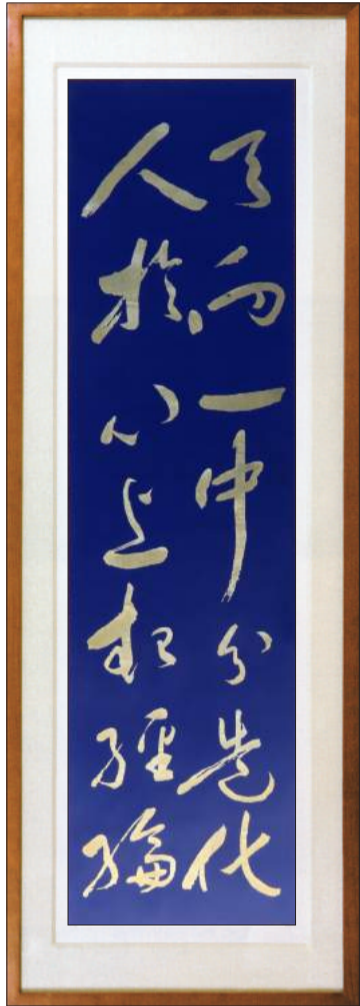 天向一中分造化
人於心上起經綸